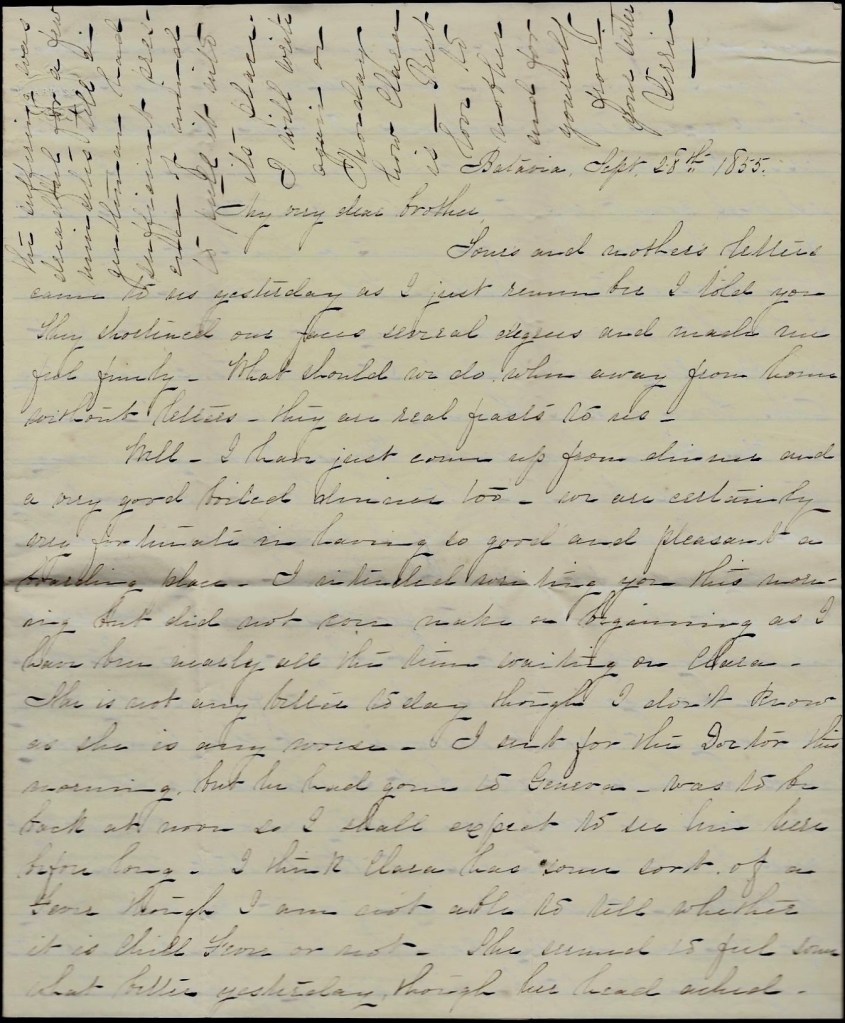 Batavia, Sept. 28th 1855.
My very dear brother,
Yours and mothers letters
came to us yesterday as I just remember I told you
They shortened our faces several degrees and made me
feel finely - What should we do, when away from home
without letters - they are real feasts to us -
Well - I have just come up from dinner and
a very good boiled dinner too - we are certainly
very fortunate in having so good and pleasant a
boarding place - I intended writing you this morn-
ing but did not even make a beginning as I
have been nearly all the time waiting on Clara -
She is not any better to day though I don't know
as she is any worse - I sent for the Doctor this
morning, but he had gone to Geneva - was to be
back at noon so I shall expect to see him here
before long - I think Clara has some sort of a
Fever though I am not able to tell whether
it is Chill Fever or not - She seemed to feel some
what better yesterday, though her head ached -
The suffering was
dreadful for a few
minutes, till a
gentleman had
sufficient pres-
ence of mind
to pull it into
its place.
I will write
again on
Monday
how Clara
is - Best
love to
mother
and for
yourself
from
your sister